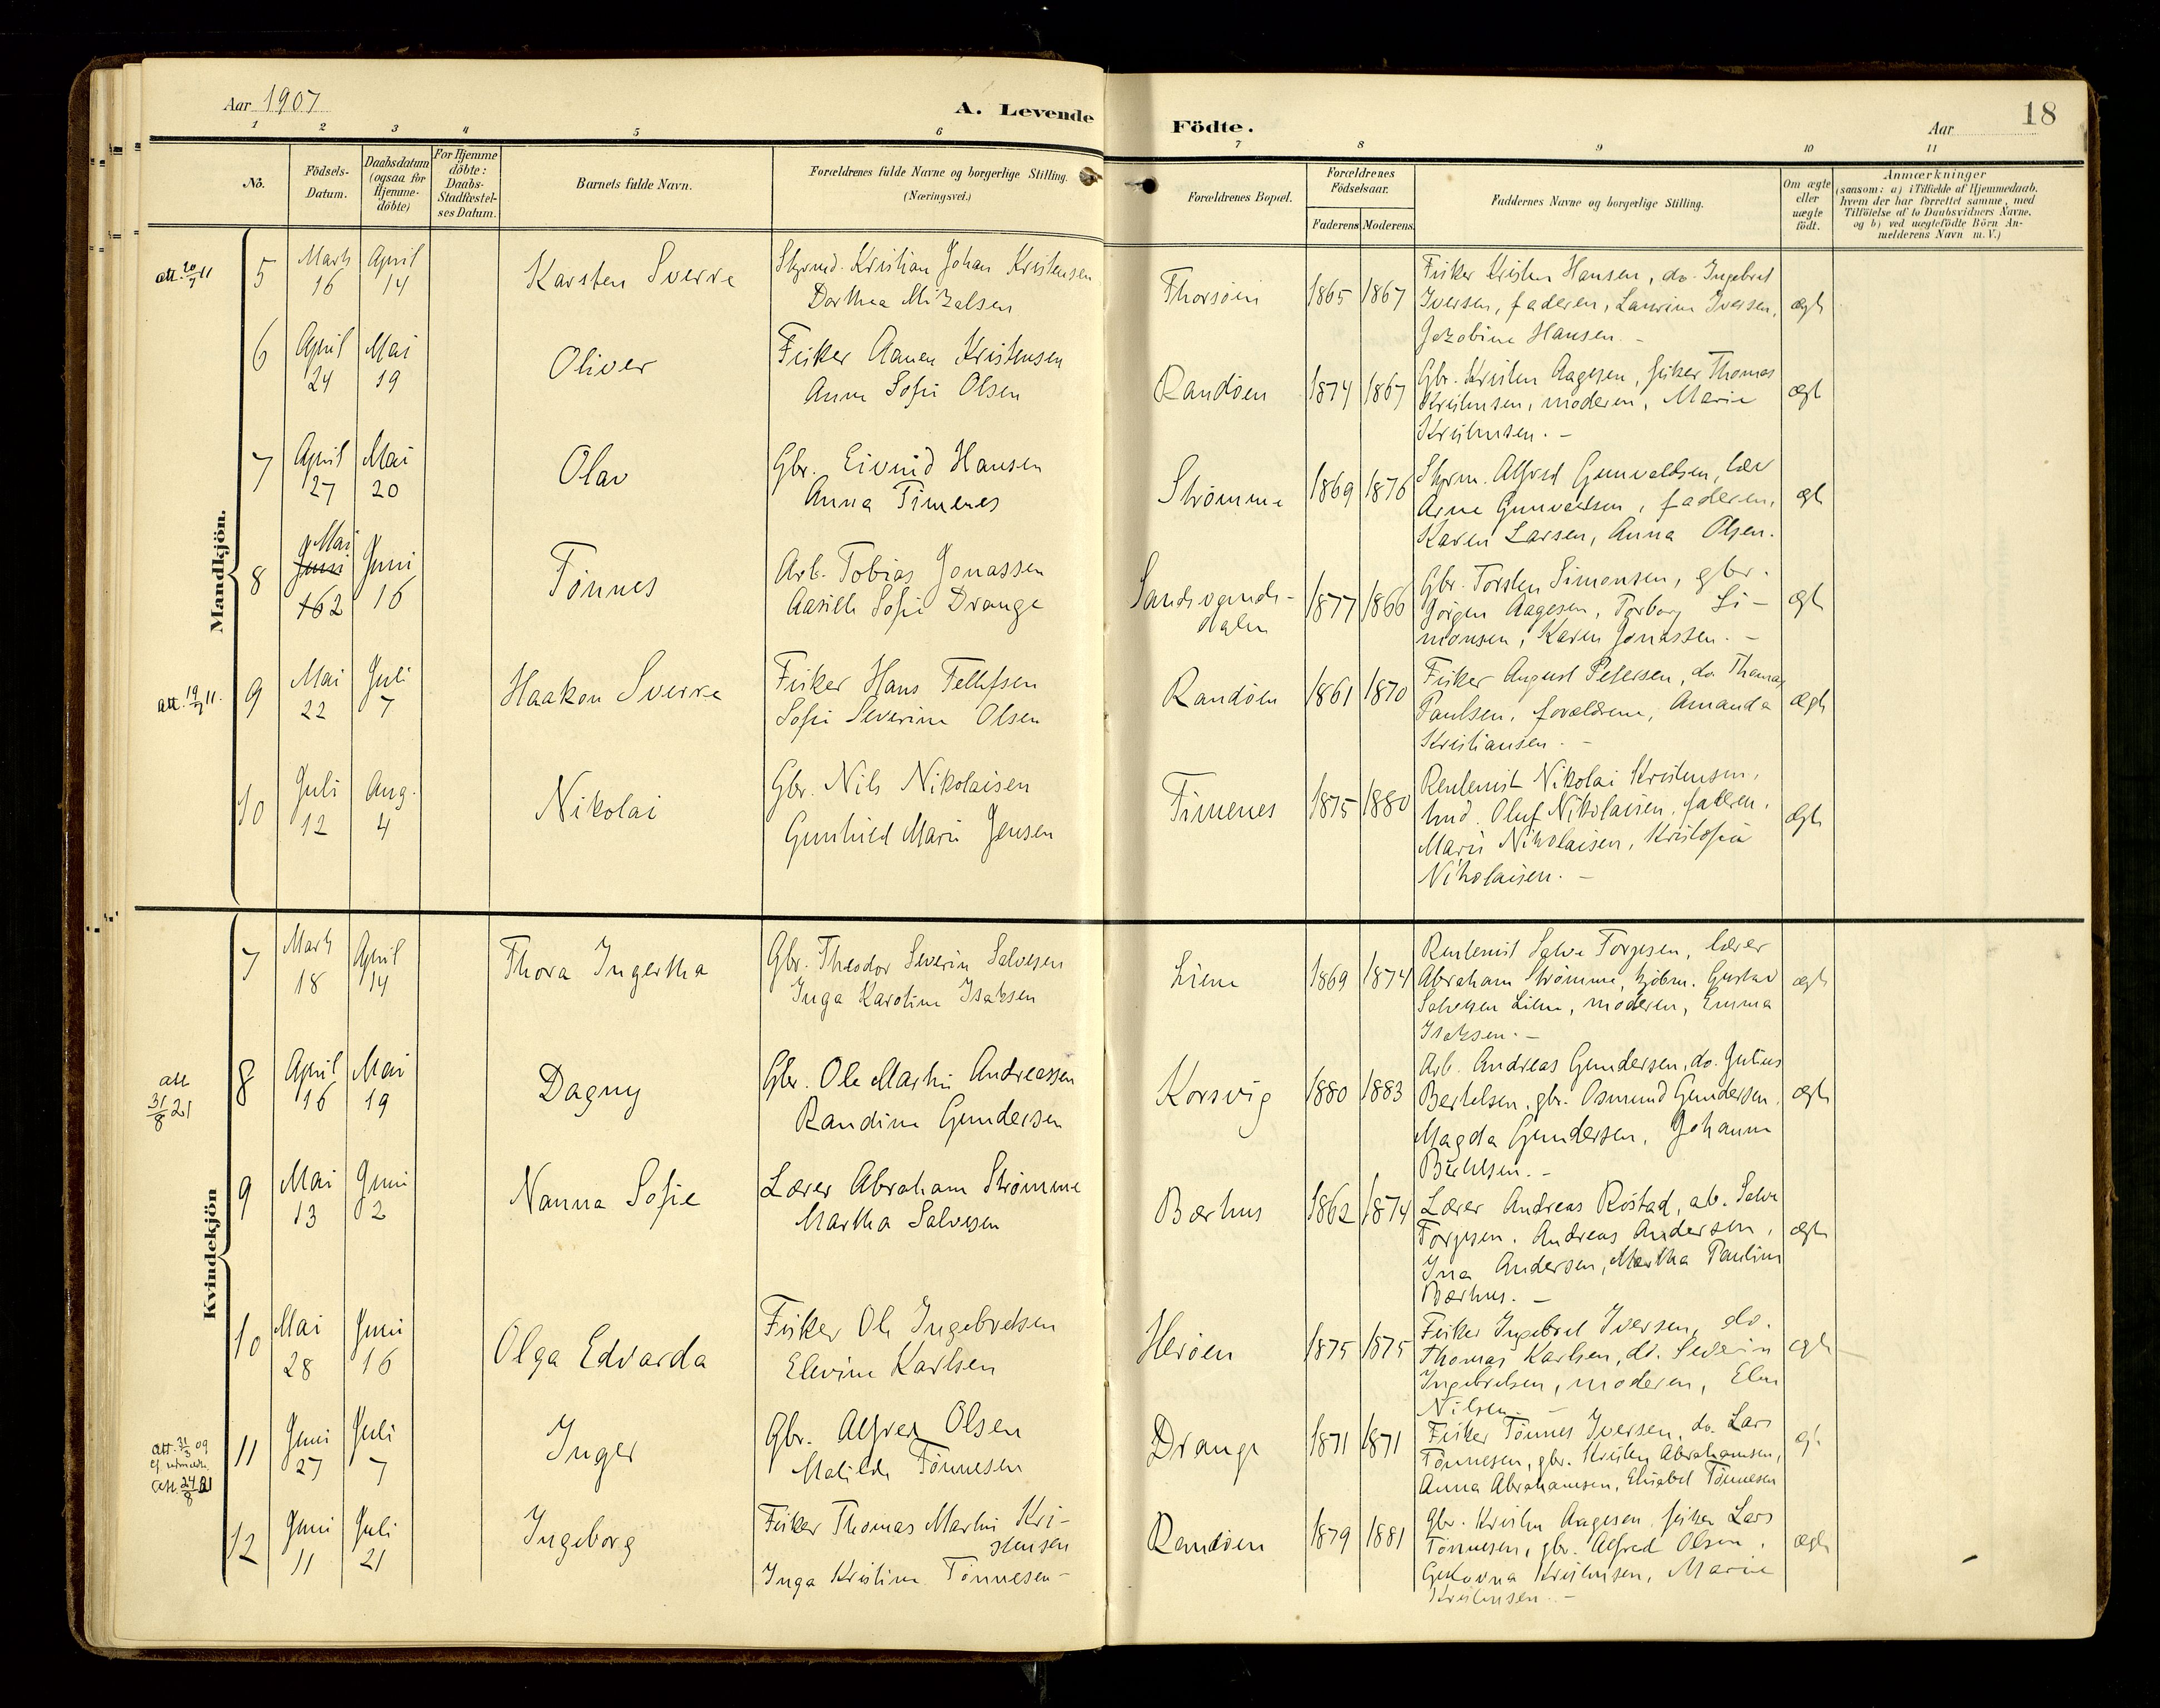 Aar 1907
A. Levende
Födte.
Aar
18
1 2 3 4 5 6 7 8 9 10 11
No.
Födsels-
Datum.
Daabsdatum
(ogsaa for
Hjemme-
döbte)
For Hjemme
döbte:
Daabs-
Stadfæstel-
ses Datum.
Barnets fulde Navn.
Forældrenes fulde Navne og borgerlige Stilling.
(Næringsvei.)
Forældrenes Bopæl.
Forældrenes
Födselsaar.
Faderens Moderens
Faddernes Navne og borgerlige Stilling.
Om ægte
eller
uægte
födt.
Anmærkninger
(saasom: a) i Tilfælde af Hjemmedaab.
hvem der har forrettet samme, med
Tilföielse af to Daabsvidners Navne.
og b) ved uægtefödte Börn An-
melderens Navn m. V.)
Mandkjön.
att. 20/7 11
5
Marts April
16 14
Karsten Sverre
Styrmd. Kristian Johan Kristensen
Dorthea Mikalsen
Thorsöen
1865 1867
Fisker Kristen Hansen, do. Ingebret
Iversen, faderen, Laurine Iversen,
Jakobine Hansen. -
ægte
6
April Mai
24 19
Oliver
Fisker Aanen Kristensen
Anne Sofie Olsen
Randöen
1874 1867
Gbr. Kristen Aagesen, fisker Thomas
Kristensen, moderen, Marie
Kristensen. -
ægte
7
April Mai
27 20
Olav
Gbr. Eivind Hansen
Anna Timenes
Strömme
1869 1876
Styrm. Alfred Gunvaldsen, lær
Arne Gunvaldsen, faderen,
Karen Larsen, Anna Olsen.
ægte
8
Mai
Juni Juni
162 16
Tönnes
Arb. Tobias Jonassen
Aasille Sofie Drange
Sandsvands-
dalen
1877 1866
Gbr. Torsten Simonsen, gbr.
Jörgen Aagesen, Torborg Si-
monsen, Karen Jonassen. -
ægte
att. 19/7 11.
9
Mai Juli
22 7
Haakon Sverre
Fisker Hans Tellefsen
Sofie Severine Olsen
Randöen
1861 1870
Fisker August Petersen, do. Thomas
Paulsen, forældrene, Amanda
Kristiansen. -
ægte
10
Juli Aug.
12 4
Nikolai
Gbr. Nils Nikolaisen
Gunhild Marie Jensen
Timenes
1875 1880
Rentenist Nikolai Kristensen,
Oluf Nikolaisen, faderen,
Marie Nikolaisen, Kristofia
Nikolaisen. -
ægte
Kvindekjön
7
Marts April
18 14
Thora Ingertha
Gbr. Theodor Severin Salvesen
Inga Karoline Isaksen
Liene
1869 1874
Rentenist Salve Torgesen, lærer
Abraham Strömme, kjöbm. Gustav
Salvesen Liene, moderen, Emma
Isaksen. -
ægte
att
31/8 21
8
April Mai
16 19
Dagny
Gbr. Ole Martin Andreassen
Randine Gundersen
Korsvig
1880 1883
Arb. Andreas Gundersen, do. Julius
Bertelsen, gbr. Osmund Gundersen,
Magda Gundersen, Johanne
Bertelsen. -
ægte
9
Mai Juni
13 2
Nanna Sofie
Lærer Abraham Strömme
Martha Salvesen
Bærhus
1862 1874
Lærer Andreas Röstad, arb. Salve
Torgesen, Andreas Andersen,
Ina Andersen, Martha Pauline
Bærhus. -
ægte
10
Mai Juni
28 16
Olga Edvarda
Fisker Ole Ingebretsen
Elevine Karlsen
Heröen
1875 1875
Fisker Ingebret Iversen, do.
Thomas Karlsen, do. Severin
Ingebretsen, moderen, Elen
Nilsen. -
ægte
att. 31/3 09
att. 24/8 21
11
Juni Juli
27 7
Inger
Gbr. Alfred Olsen
Matilde Tönnesen
Drange
1871 1871
Fisker Tönnes Iversen, do. Lars
Tönnesen, gbr. Kristen Abrahamsen,
Anna Abrahamsen, Elisabet Tönnesen
ægte
12
Juni Juli
11 21
Ingeborg
Fisker Thomas Martin Kri-
stensen
Inga Kristine Tönnesen -
Randöen
1879 1881
Gbr. Kristen Aagesen, fisker Lars
Tönnesen, gbr. Alfred Olsen,
Kristensen, Marie
Kristensen. -
ægte